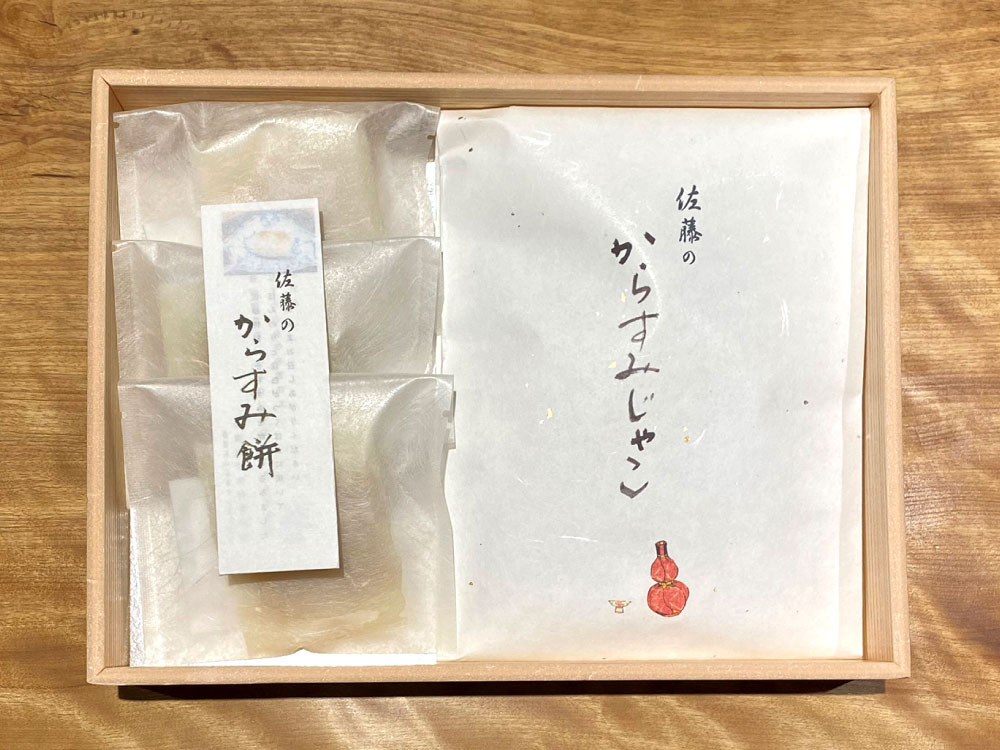 佐藤の
からすみじゃこ
佐藤の
からすみ餅